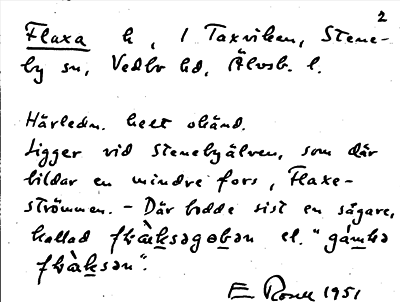 2
Flaxa h, i Taxviken, Stene-
by sn, Vedbo hd, Älvsb. l.
Härledn. helt okänd.
Ligger vid Stenebyälven, som där
bildar en mindre fors, Flaxe-
strömmen. – Där bodde sist en sågare,
kallad el. "
E 1951